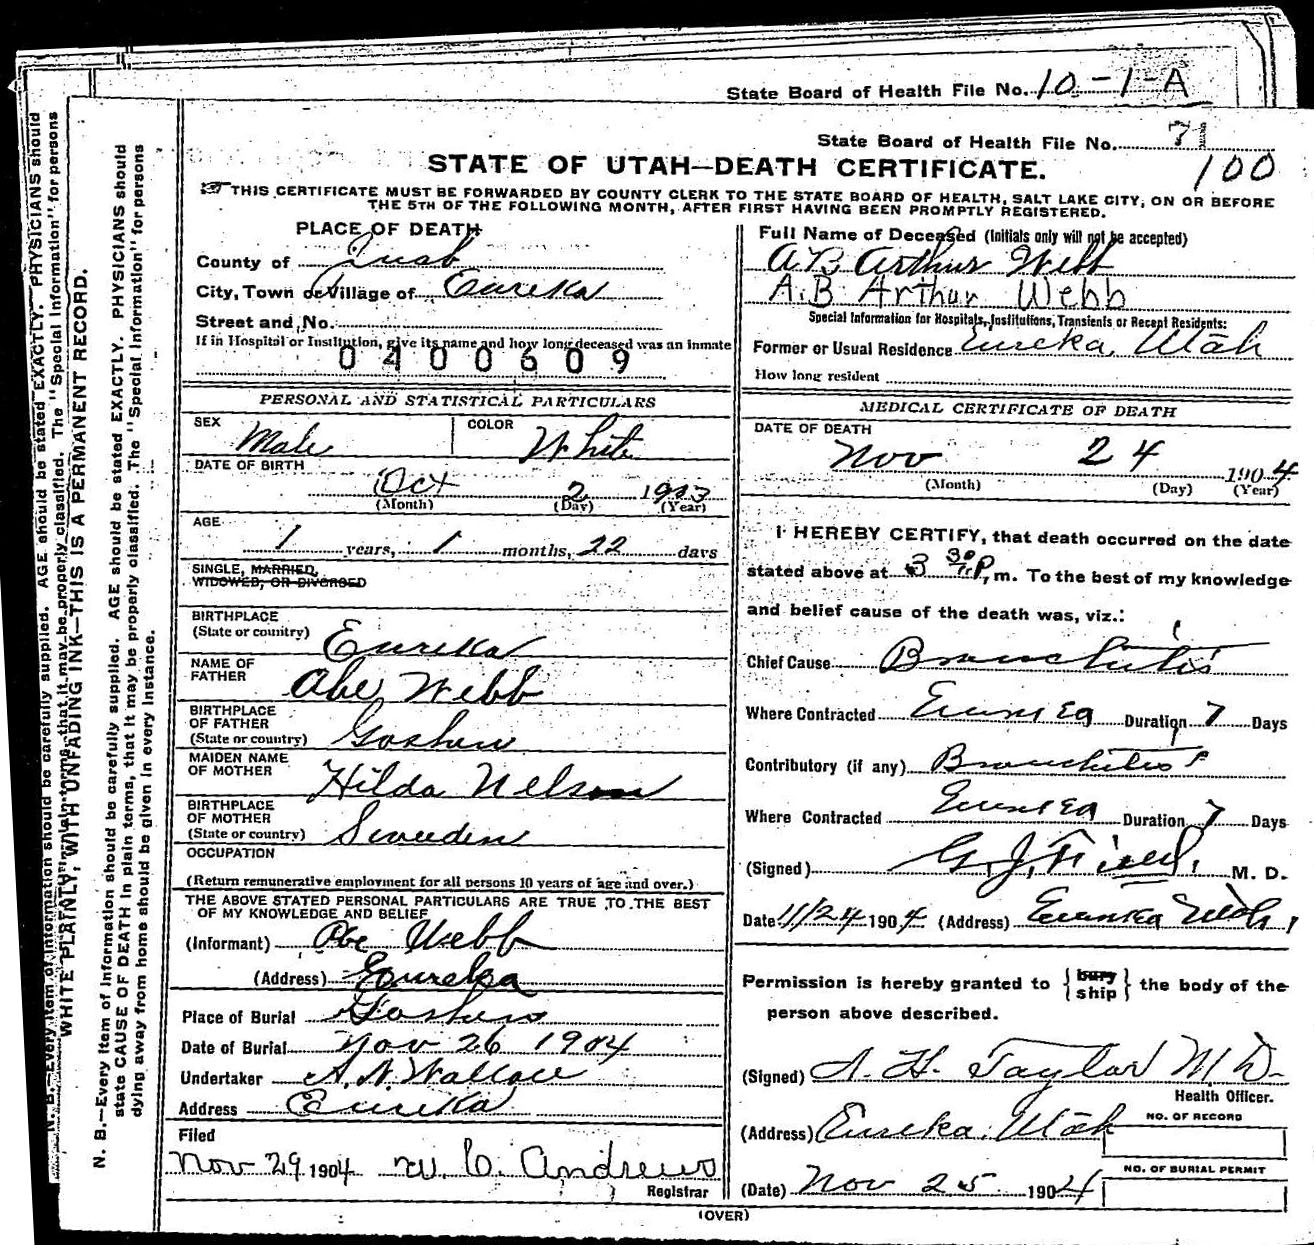 State Board of Health File No. 10-1-A
State Board of Health File No. 71
100
STATE OF UTAH—DEATH CERTIFICATE.
THIS CERTIFICATE MUST BE FORWARDED BY COUNTY CLERK TO THE STATE BOARD OF HEALTH, SALT LAKE CITY, ON OR BEFORE
THE 5TH OF THE FOLLOWING MONTH, AFTER FIRST HAVING BEEN PROMPTLY REGISTERED.
PLACE OF DEATH
County of Juab
City, Town or Village of Eureka
Street and No.
If in Hospital or Institution, give its name and how long deceased was an inmate
0400609
Full Name of Deceased (Initials only will not be accepted)
A B Arthur Webb
A.B Arthur Webb
Special Information for Hospitals, Institutions, Transients or Recent Residents:
Former or Usual Residence Eureka, Utah
How long resident
PERSONAL AND STATISTICAL PARTICULARS
SEX Male COLOR White
DATE OF BIRTH
Oct 2 1903
(Month) (Day) (Year)
AGE
1 years, 1 months, 22 days
SINGLE, MARRIED,
WIDOWED, OR DIVORCED
BIRTHPLACE
(State or country) Eureka
NAME OF
FATHER Abe Webb
BIRTHPLACE
OF FATHER
(State or country) Goshen
MAIDEN NAME
OF MOTHER Hilda Nelson
BIRTHPLACE
OF MOTHER
(State or country) Sweeden
OCCUPATION
(Return remunerative employment for all persons 10 years of age and over.)
THE ABOVE STATED PERSONAL PARTICULARS ARE TRUE TO THE BEST
OF MY KNOWLEDGE AND BELIEF
(Informant) Abe Webb
(Address) Eureka
Place of Burial Goshen
Date of Burial Nov 26 1904
Undertaker A. N. Wallace
Address Eureka
Filed
Nov 29 1904 W. C. Andrews
Registrar
MEDICAL CERTIFICATE OF DEATH
DATE OF DEATH
Nov 24 1904
(Month) (Day) (Year)
I HEREBY CERTIFY, that death occurred on the date
stated above at 3 30 P, m. To the best of my knowledge
and belief cause of the death was, viz.:
Chief Cause Bronchitis
Where Contracted Eureka Duration 7 Days
Contributory (if any) Bronchitis
Where Contracted Eureka Duration 7 Days
(Signed) G. J. Field, M. D.
Date 11/24 1904 (Address) Eureka Utah
Permission is hereby granted to { bury ship } the body of the
person above described.
(Signed) A. H. Taylor M D.
Health Officer.
(Address) Eureka, Utah
NO. OF RECORD
NO. OF BURIAL PERMIT
(Date) Nov 25 1904
(OVER)
WHITE PLAINLY, WITH UNFADING INK—THIS IS A PERMANENT RECORD.
N. B.—Every item of information should be carefully supplied. AGE should be stated EXACTLY. PHYSICIANS should
state CAUSE OF DEATH in plain terms, that it may be properly classified. The "Special Information" for persons
dying away from home should be given in every instance.
N. B.—Every item of information should be carefully supplied. AGE should be stated EXACTLY. PHYSICIANS should
that it may be properly classified. The "Special Information" for persons